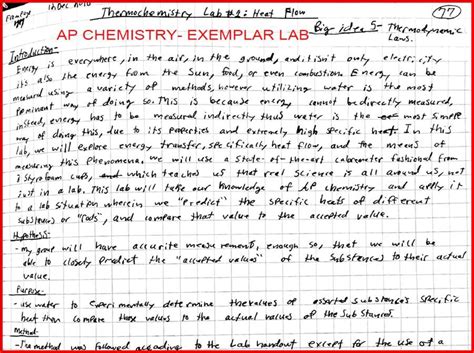 Thermochemistry Lab #2: Heat Flow
77
AP CHEMISTRY- EXEMPLAR LAB
Big idea 5- Thermodynamic
Laws.
Introduction-
Energy is everywhere, in the air, in the ground, and it isn't only electricity
its also the energy from the Sun, food, or even combustion. Energy can be
measured using a variety of methods, however utilizing water is the most
way of doing so. This is because energy cannot be directly measured,
instead, energy has to be measured indirectly thus water is the most simple
way of doing this, due to its properties and extremely high specific heat. In this
lab, we will explore energy transfer, specifically heat flow, and the means of
measuring this Phenomena, we will use a State-of-the-art calorimeter fashioned from
Styrofoam cups, which teaches us that real science is all around us, not
just in a lab. This lab will take our knowledge of AP chemistry and apply it
to a lab situation wherein we "predict" the specific heats of different
substances or "rods", and compare that value to the accepted value.
Hypothesis-
- my group will have accurite measurements, enough so, that we will be
able to closely predict the "accepted values" of the Substances to their actual
value.
Purpose-
- use water to experimentally determine the values of assorted substances specific
heat then compare those values to the actual values of the Substances.
Method-
- The method was followed according to the Lab handout except for the use of a